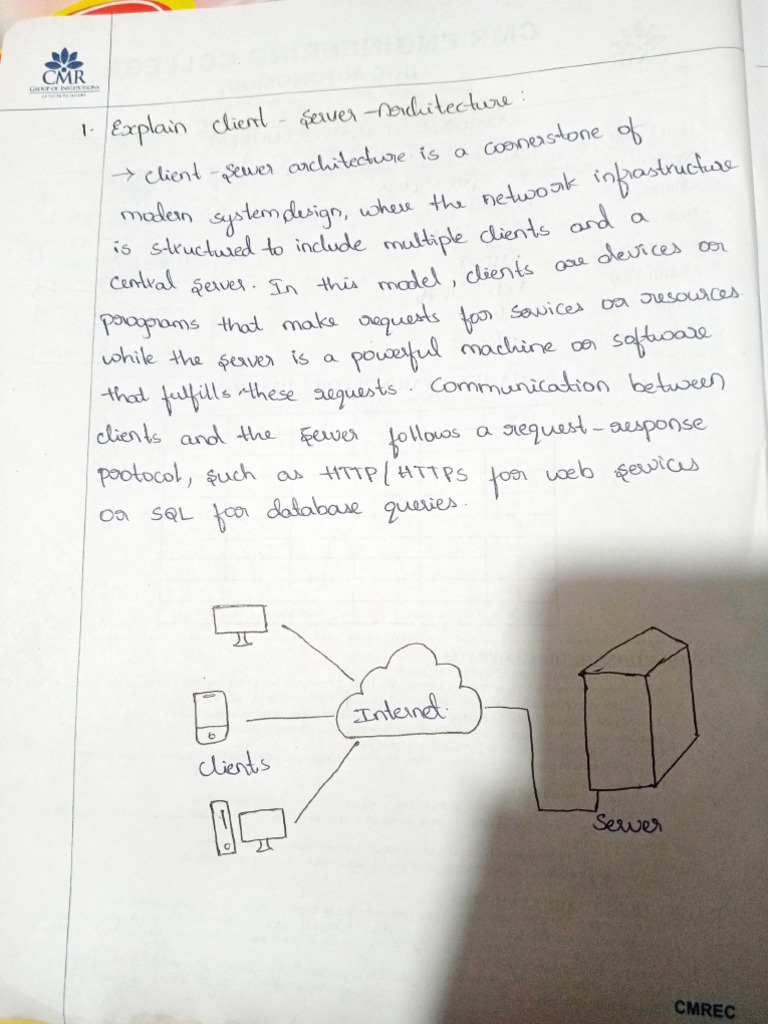 CMR
GROUP OF INSTITUTIONS
1. Explain client - Server - Architecture :
→ client - Server architecture is a cornerstone of
modern system design, where the network infrastructure
is structured to include multiple clients and a
central server. In this model, clients are devices or
programs that make requests for services or resources
while the server is a powerful machine or software
that fulfills these requests. Communication between
clients and the server follows a request - response
protocol, such as HTTP/HTTPS for web services
or SQL for database queries.
Internet
clients
Server
CMREC